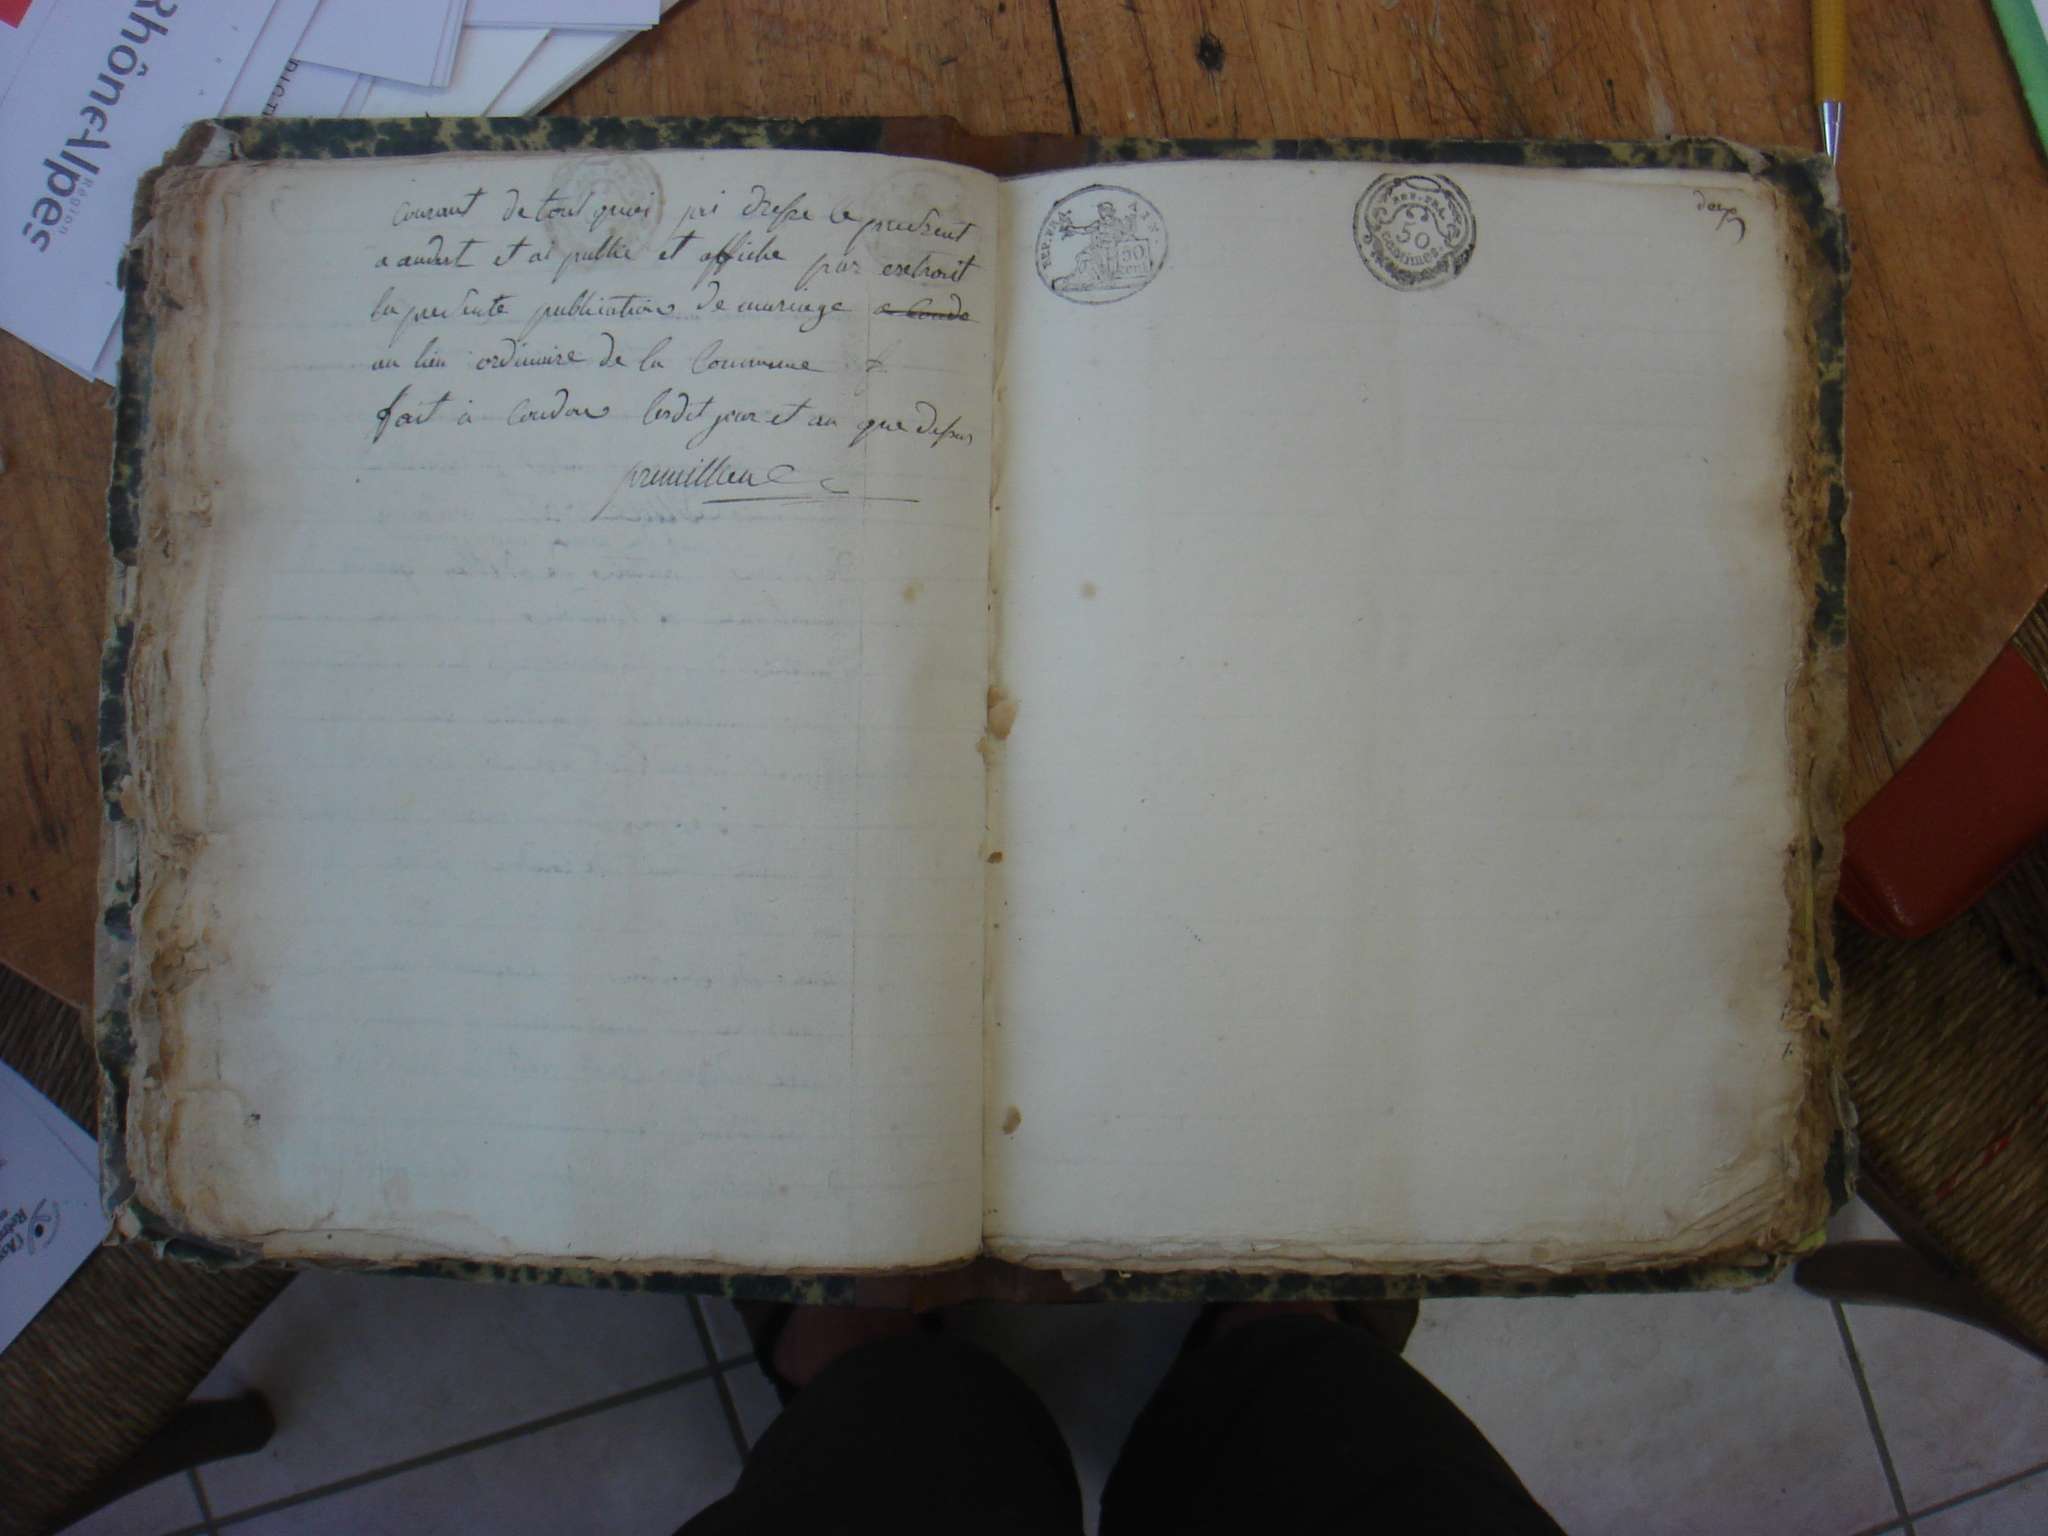 Rhône-Alpes
Région
courant de tout quoi jai dresse le pressent
et ai publie et affiche par extrait
la presente publication de mariage
au lieu ordinaire de la Commune
fait à condon lesdit jour et an que dessus
premillieu
REP. FRA. AIN.
50
cent.
REP. FRA.
50
centimes.
deux